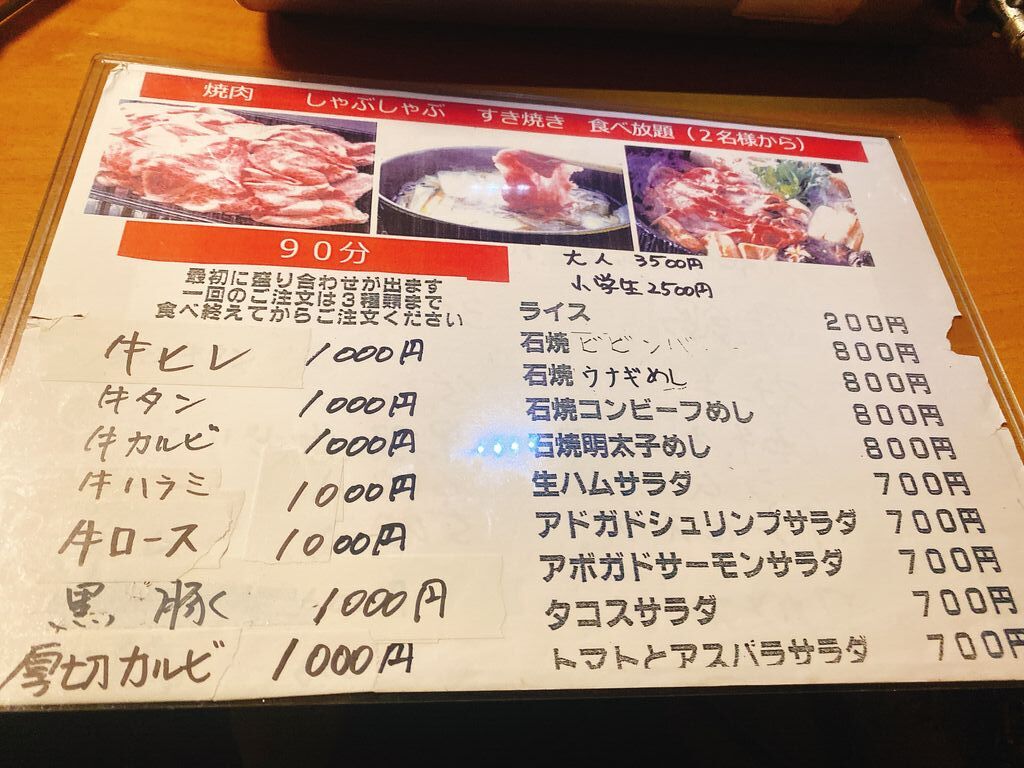 焼肉 しゃぶしゃぶ すき焼き 食べ放題(２名様から)
９０分
最初に盛り合わせが出ます
一回のご注文は３種類まで
食べ終えてからご注文ください
大人 3500円
小学生 2500円
牛ヒレ 1000円
牛タン 1000円
牛カルビ 1000円
牛ハラミ 1000円
牛ロース 1000円
黒 豚 1000円
厚切カルビ 1000円
ライス 200円
石焼 ビビンバ 800円
石焼 ウナギめし 800円
石焼コンビーフめし 800円
石焼明太子めし 800円
生ハムサラダ 700円
アドガドシュリンプサラダ 700円
アボガドサーモンサラダ 700円
タコスサラダ 700円
トマトとアスパラサラダ 700円